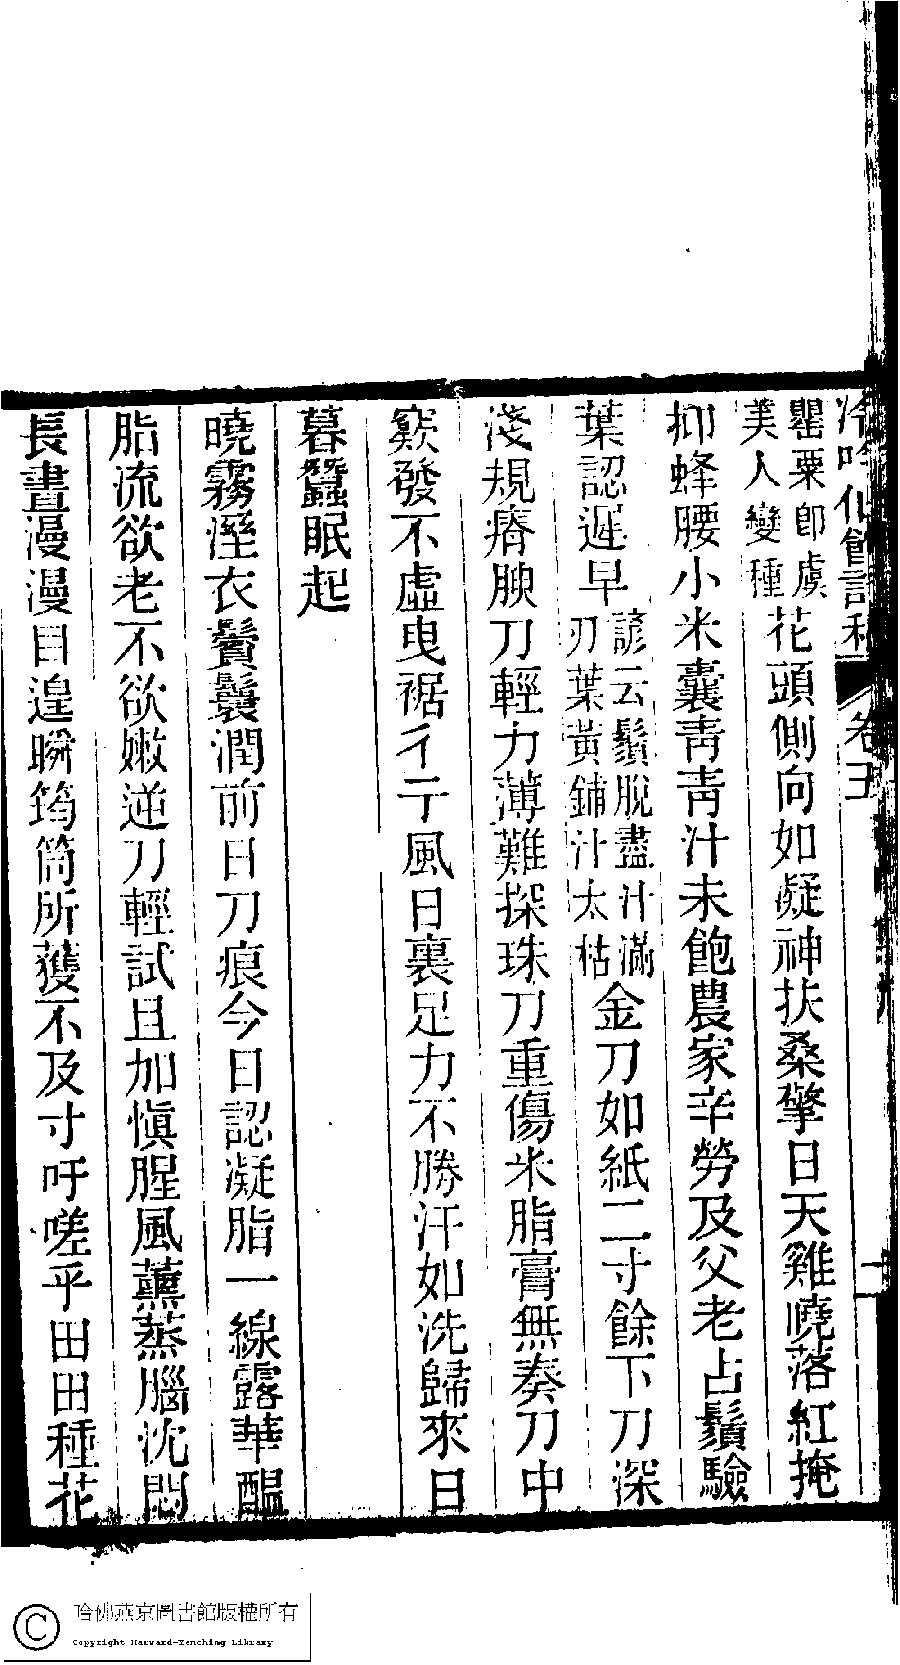 冷吟仙館詩稿 卷五
罌粟卽虞美人變種花頭側向如凝神扶桑擎日天雞曉落紅掩
抑蜂腰小米囊靑靑汁未飽農家辛勞及父老占鬚驗
葉認遲早諺云鬚脫盡汁滿刃葉黃鋪汁太枯金刀如紙二寸餘下刀深
淺規瘠腴刀輕力薄難探珠刀重傷米脂膏無奏刀中
窾發不虛曳裾彳亍風日裏足力不勝汗如洗歸來日
暮蠶眠起
曉霧溼衣鬢鬟潤前日刀痕今日認凝脂一線露華醞
脂流欲老不欲嫩逆刀輕試且加愼腥風薰蒸腦沈悶
長晝漫漫目遑瞬筠筒所獲不及寸吁嗟乎田田種花
哈佛燕京圖書館版權所有
Copyright Harvard-Yenching Library